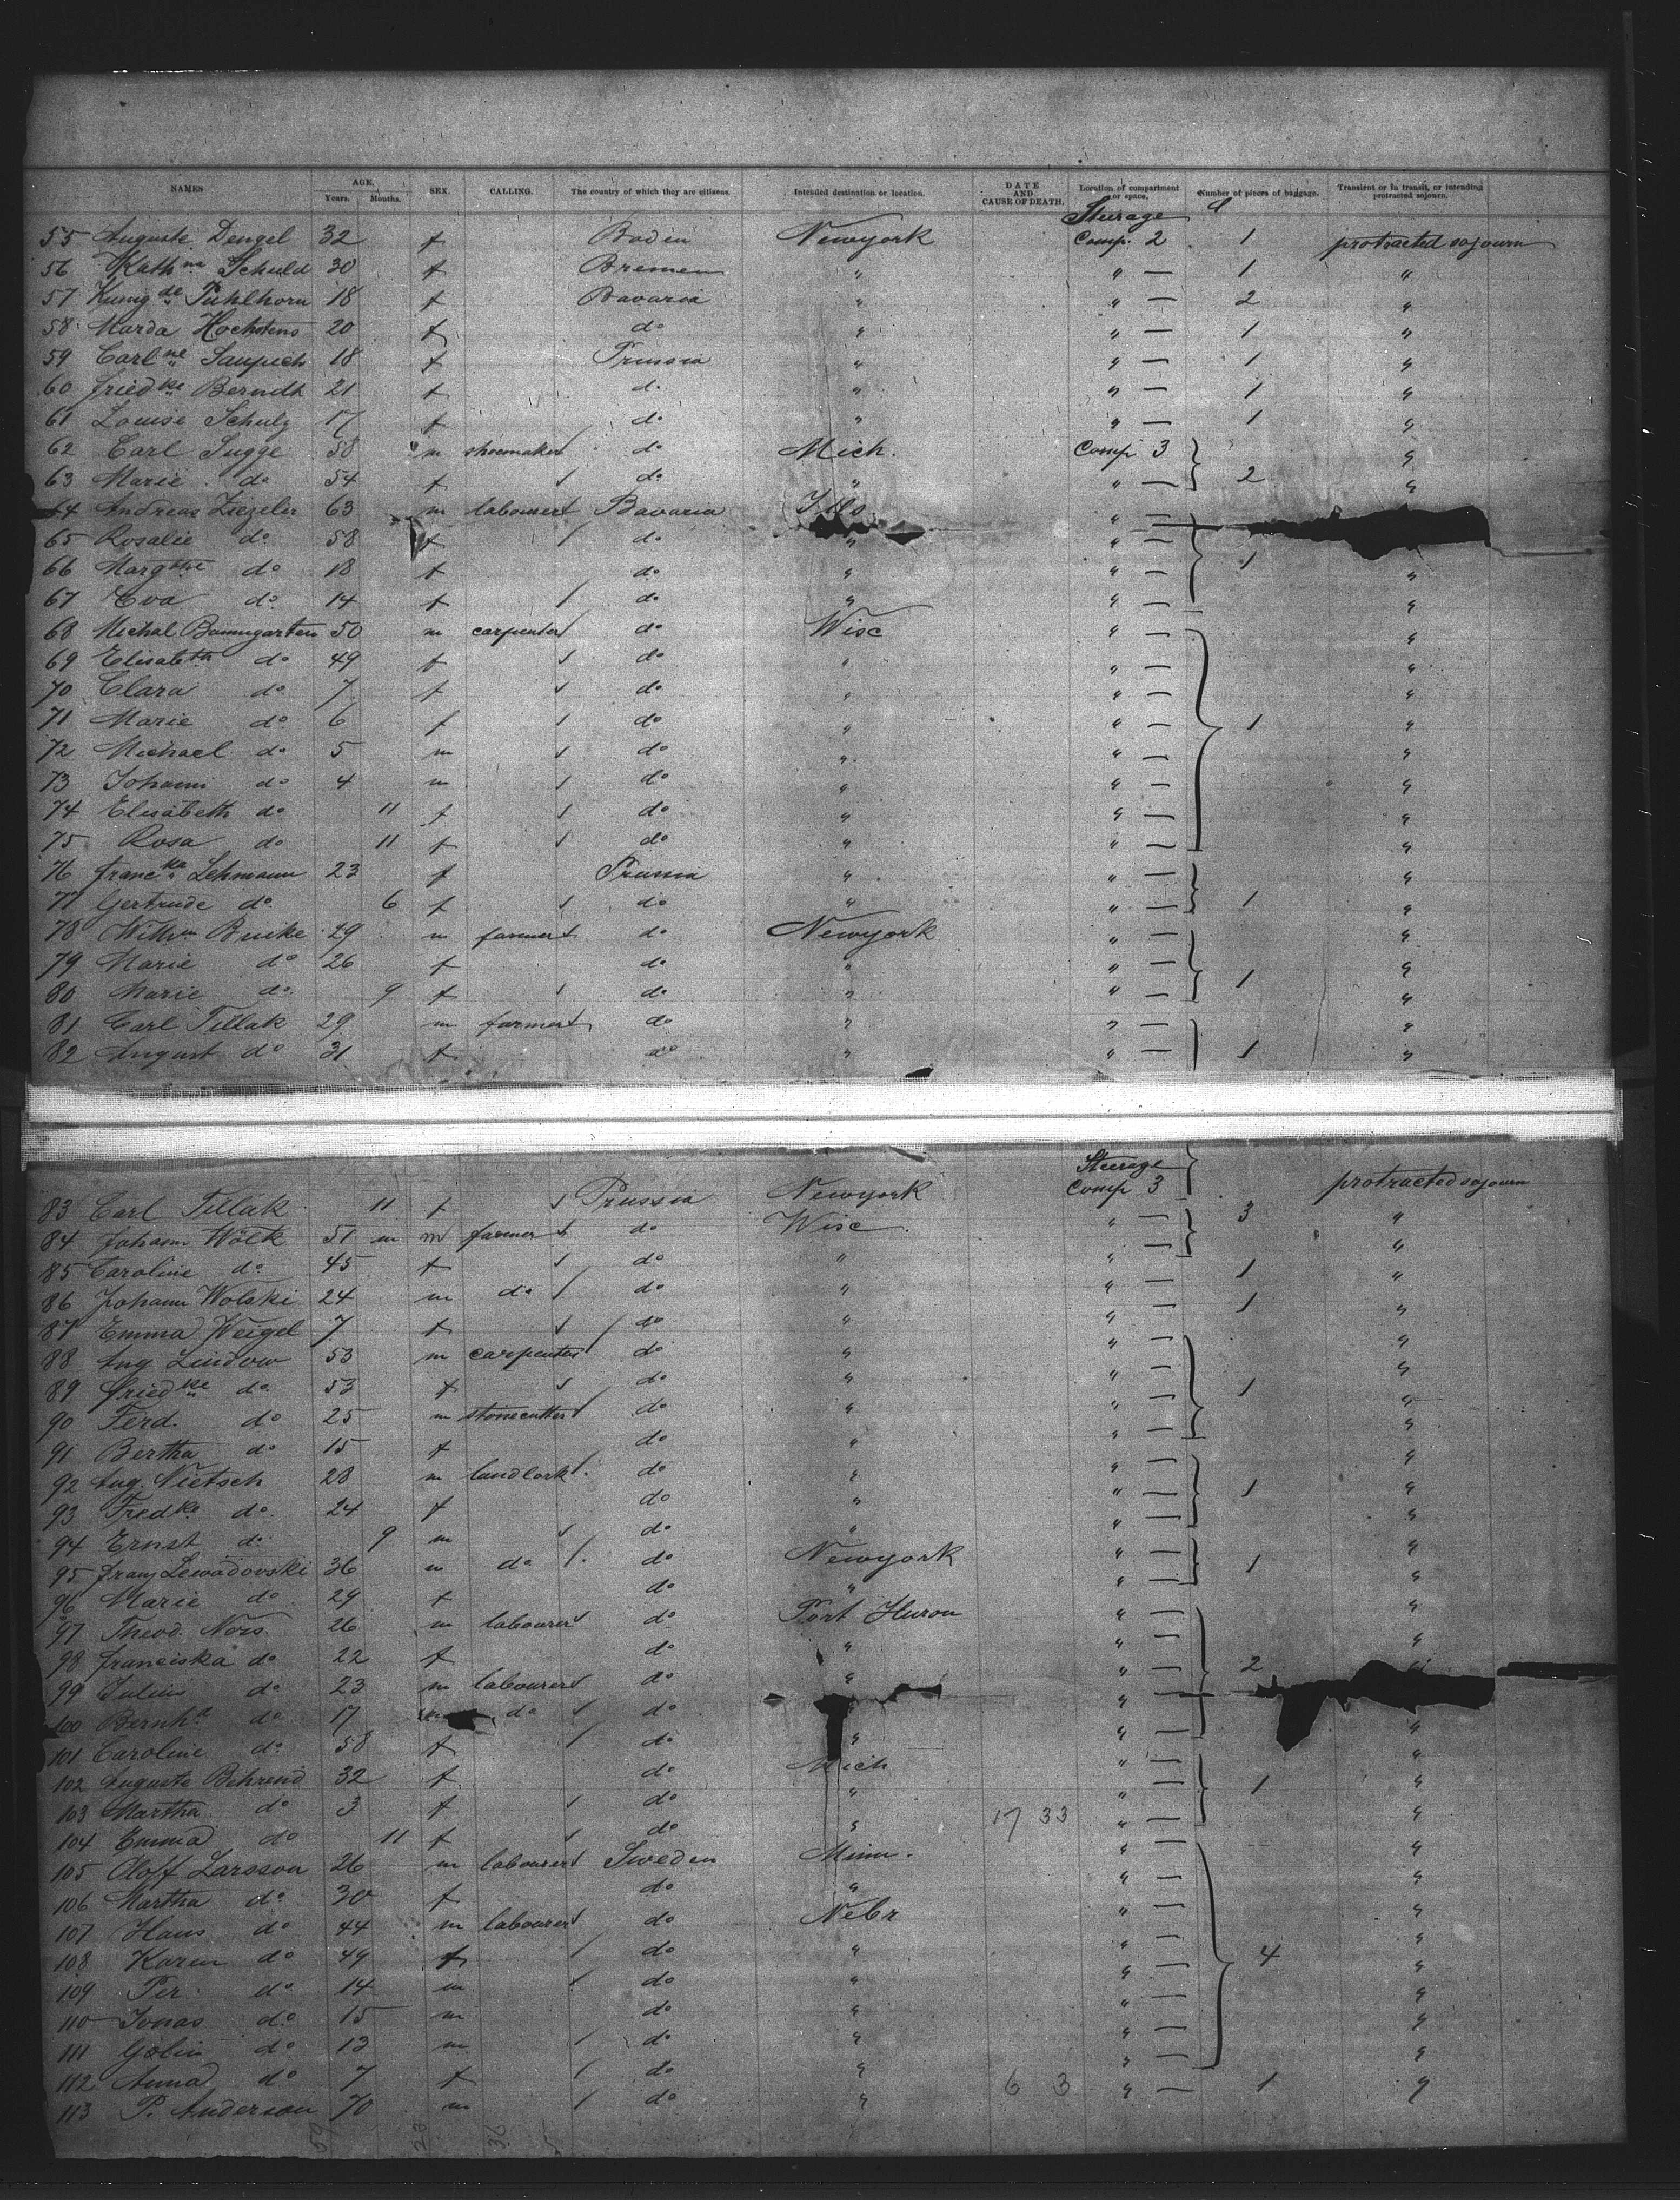 NAMES AGE, Years. Months. SEX. CALLING. The country of which they are citizens. Intended destination or location. DATE AND CAUSE OF DEATH. Location of compartment or space. Number of pieces of baggage. Transient or in transit, or intending protracted sojourn.
Steerage
55 Auguste Dengel 32 f Baden Newyork Comp. 2 1 protracted sojourn
56 Kathna Schuld 30 f Bremen " " — 1 "
57 Kunigde Puhlhorn 18 f Bavaria " " — 2 "
58 Marda 20 f do " " — 1 "
59 Carlne 18 f Prussia " " — 1 "
60 Friedke Berndt 21 f do " " — 1 "
61 Louise Schulz 17 f do " " — 1 "
62 Carl Sugge 58 m shoemaker do Mich. Comp 3 "
63 Marie do 54 f do " " — 2 "
64 Andreas Ziegeler 63 m labourer Bavaria Ills " —
65 Rosalie do 58 f do " " —
66 Margthe do 18 f do " " — 1 "
67 Eva do 14 f do " " — "
68 Michal Baumgarten 50 m carpenter do Wisc " — "
69 Elisabeth do 49 f do " " — "
70 Clara do 7 f do " " — "
71 Marie do 6 f do " " — 1 "
72 Michael do 5 m do " " — "
73 Johann do 4 m do " " — "
74 Elisabeth do 11 f do " " — "
75 Rosa do 11 f do " " — "
76 Francka Lehmann 23 f Prussia " " — "
77 Gertrude do 6 f do " " — 1 "
78 Willm Buike 29 m farmer do Newyork " — "
79 Marie do 26 f do " " — "
80 Marie do 9 f do " " — 1 "
81 Carl Tillak 29 m farmer do " " — "
82 August do 31 f do " " — 1 "
Steerage
83 Carl Tillak 11 f Prussia Newyork Comp 3 protracted sojourn
84 Johann Wölk 51 m m farmer do Wisc. " — 3 "
85 Caroline do 45 f do " " — "
86 Johann Wolski 24 m do do " " — 1 "
87 Emma Weigel 7 f do " " — 1 "
88 Aug Lindow 53 m carpenter do " " — "
89 Friedke do 53 f do " " — "
90 Ferd. do 25 m stonecutter do " " — 1 "
91 Bertha do 15 f do " " — "
92 Aug. Nietsch 28 m do " " — "
93 Fredke do 24 f do " " — 1 "
94 Ernst do 9 m do " " — "
95 Franz Lewadovski 36 m do do Newyork " — "
96 Marie do 29 f do " " — 1 "
97 Theod. Nors. 26 m labourer do Port Huron " — "
98 Franciska do 22 f do " " — "
99 Julius do 23 m labourer do " " — 2
100 Bernht do 17 do do " —
101 Caroline do 58 f do " " — "
102 Auguste Behrend 32 f do Mich " — "
103 Martha do 3 f do " " — 1 "
104 Emma do 11 f do " 17 33 " — "
105 Oloff Larsson 26 m labourer Sweden Minn. " — "
106 Martha do 30 f do " " — "
107 Hans do 44 m labourer do Nebr " — "
108 Karen do 49 f do " " — 4 "
109 Per do 14 m do " " — "
110 Jonas do 15 m do " " — "
111 Gölin do 13 m do " " — "
112 Anna do 7 f do " " — "
113 P. Anderson 70 m do " 6 3 " — 1 "
59 23 36